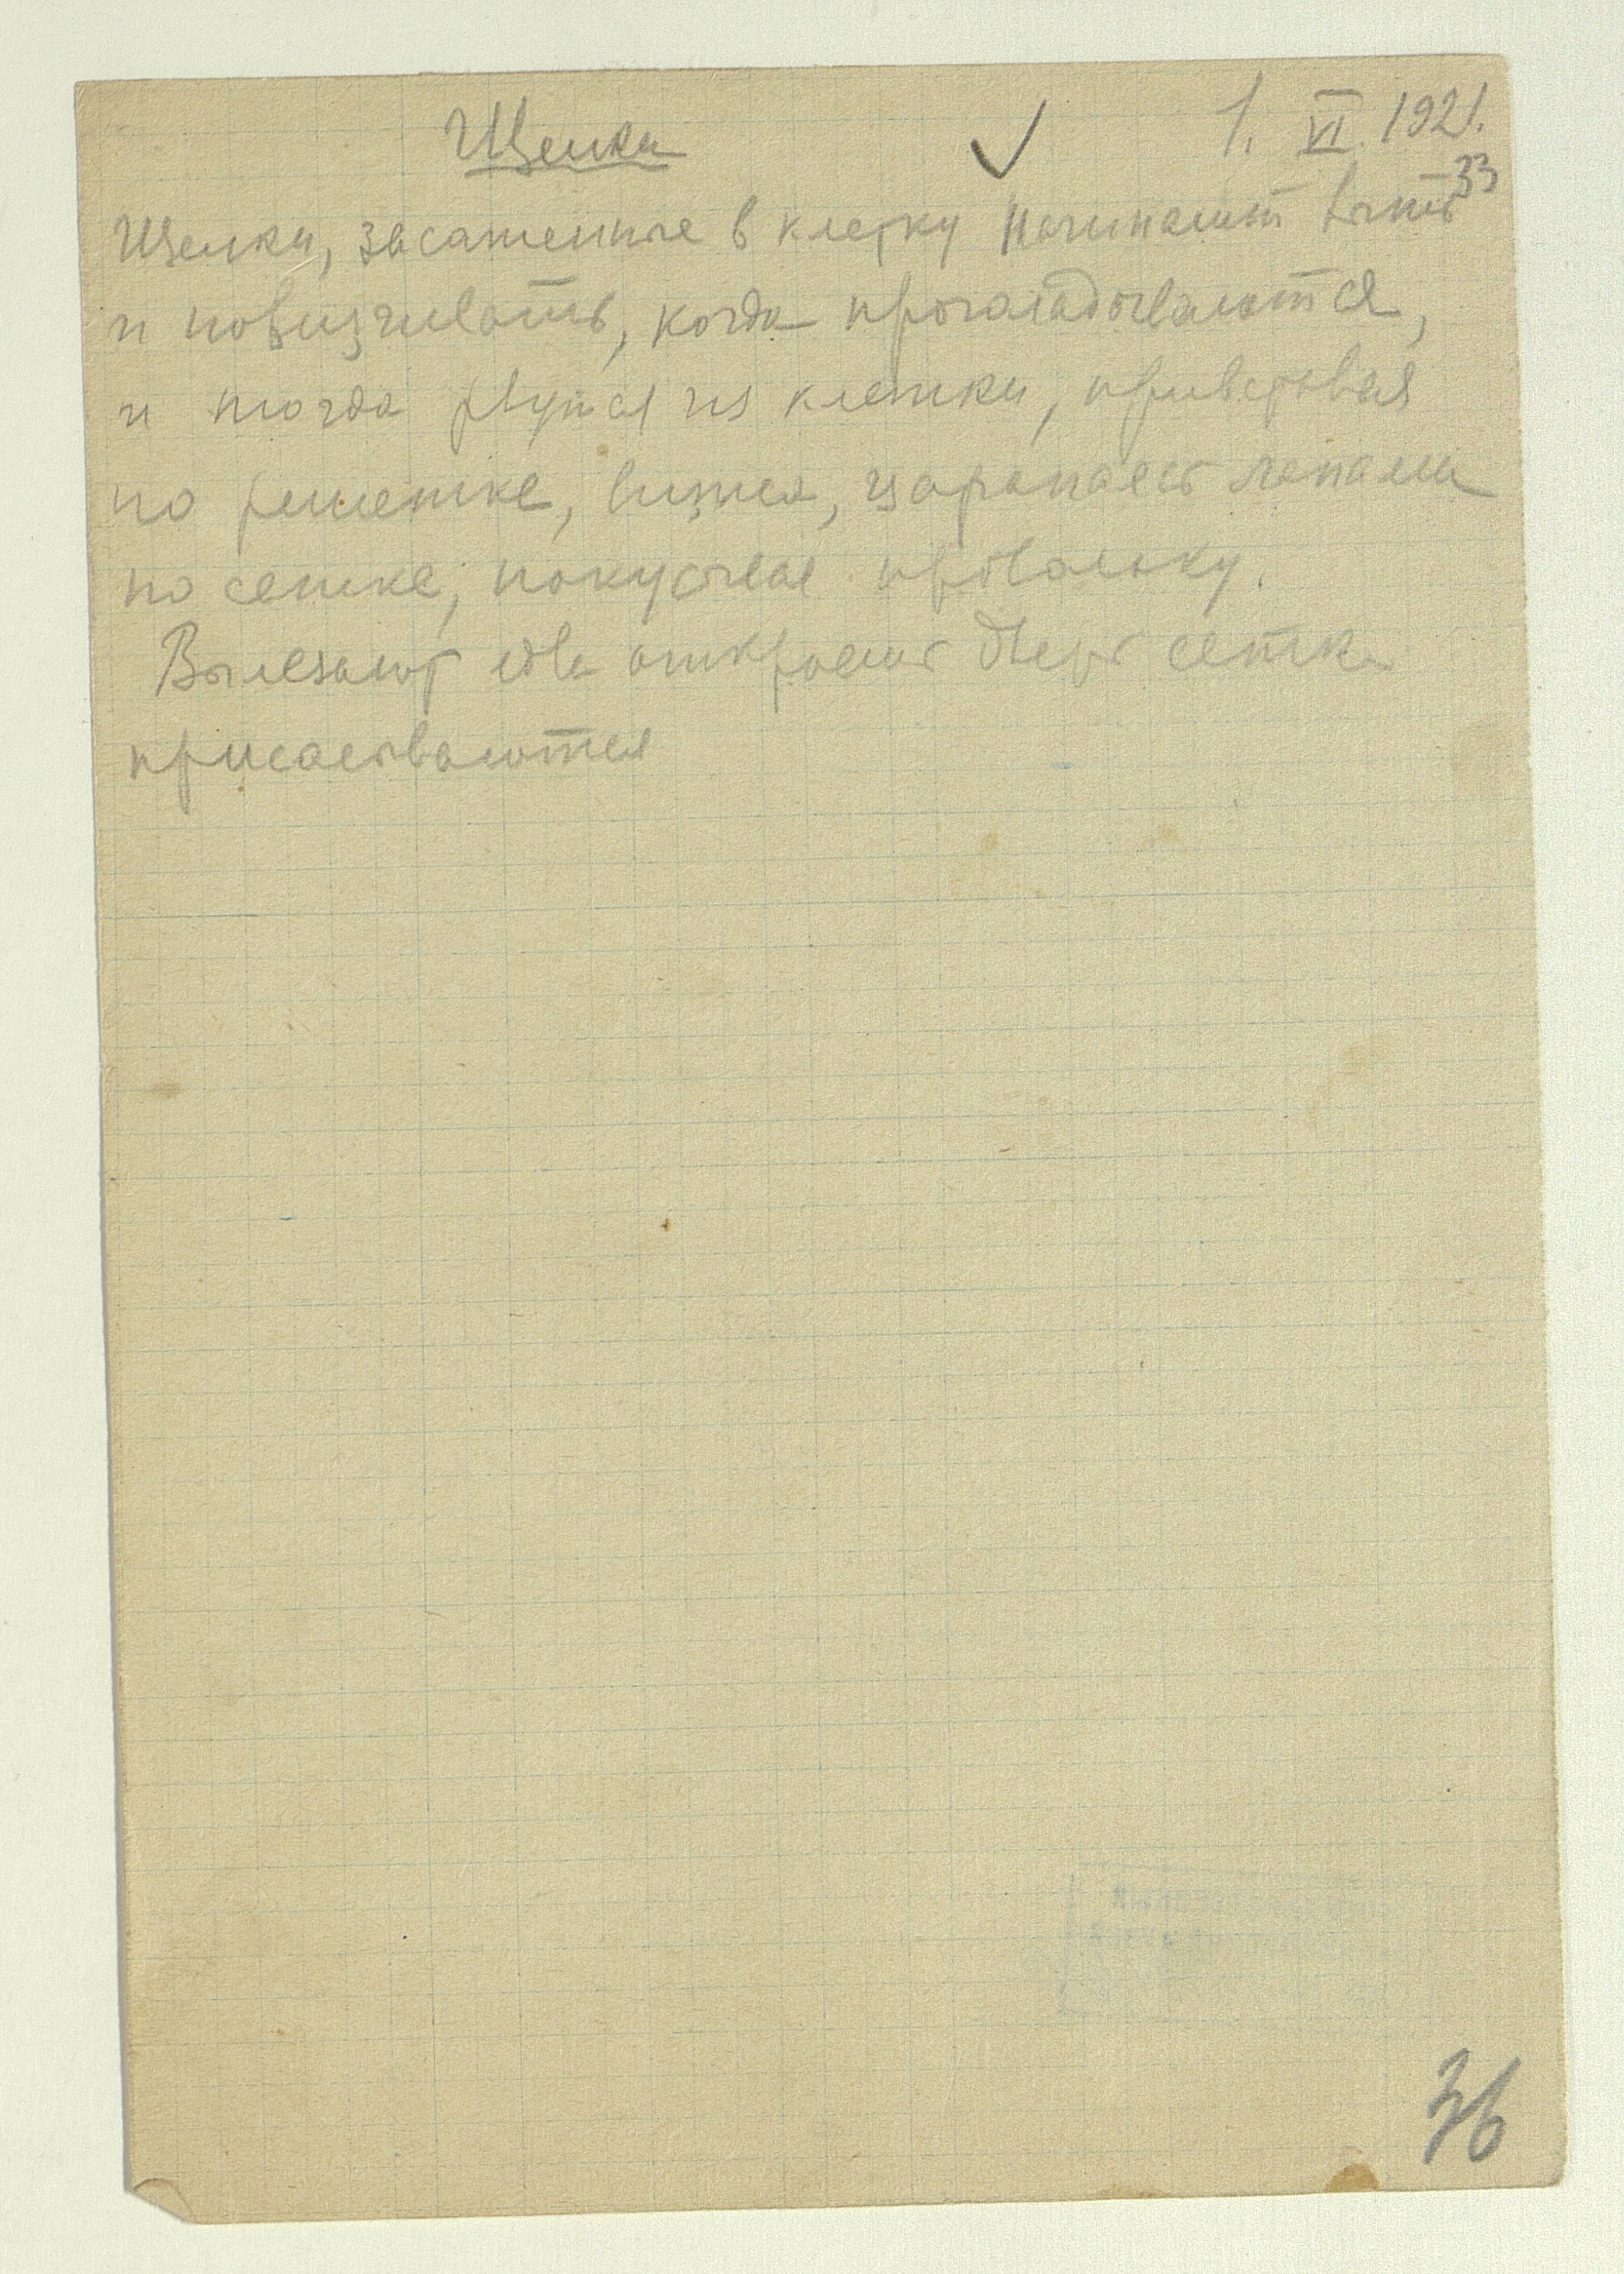 Щенки
1. VI 1921.
33
Щенки, засаженные в клетку начинают выть
и повизгивать, когда проголадываются,
и тогда рвутся из клетки,
по решетке, визжа, царапаясь лапами
по сетке, покусывая проволоку.
Вылезают едва откроешь дверь сетки
присасываются
36